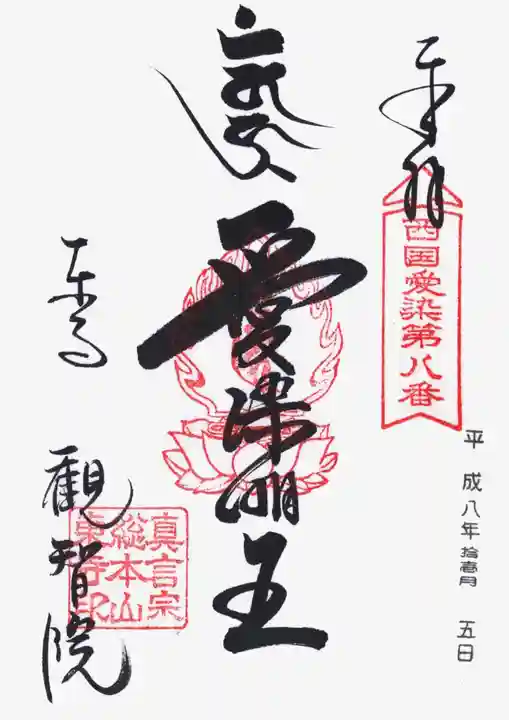 奉拝
西国愛染第八番
平成八年拾壱月五日
愛染明王
東寺
觀智院
真言宗
総本山
東寺印